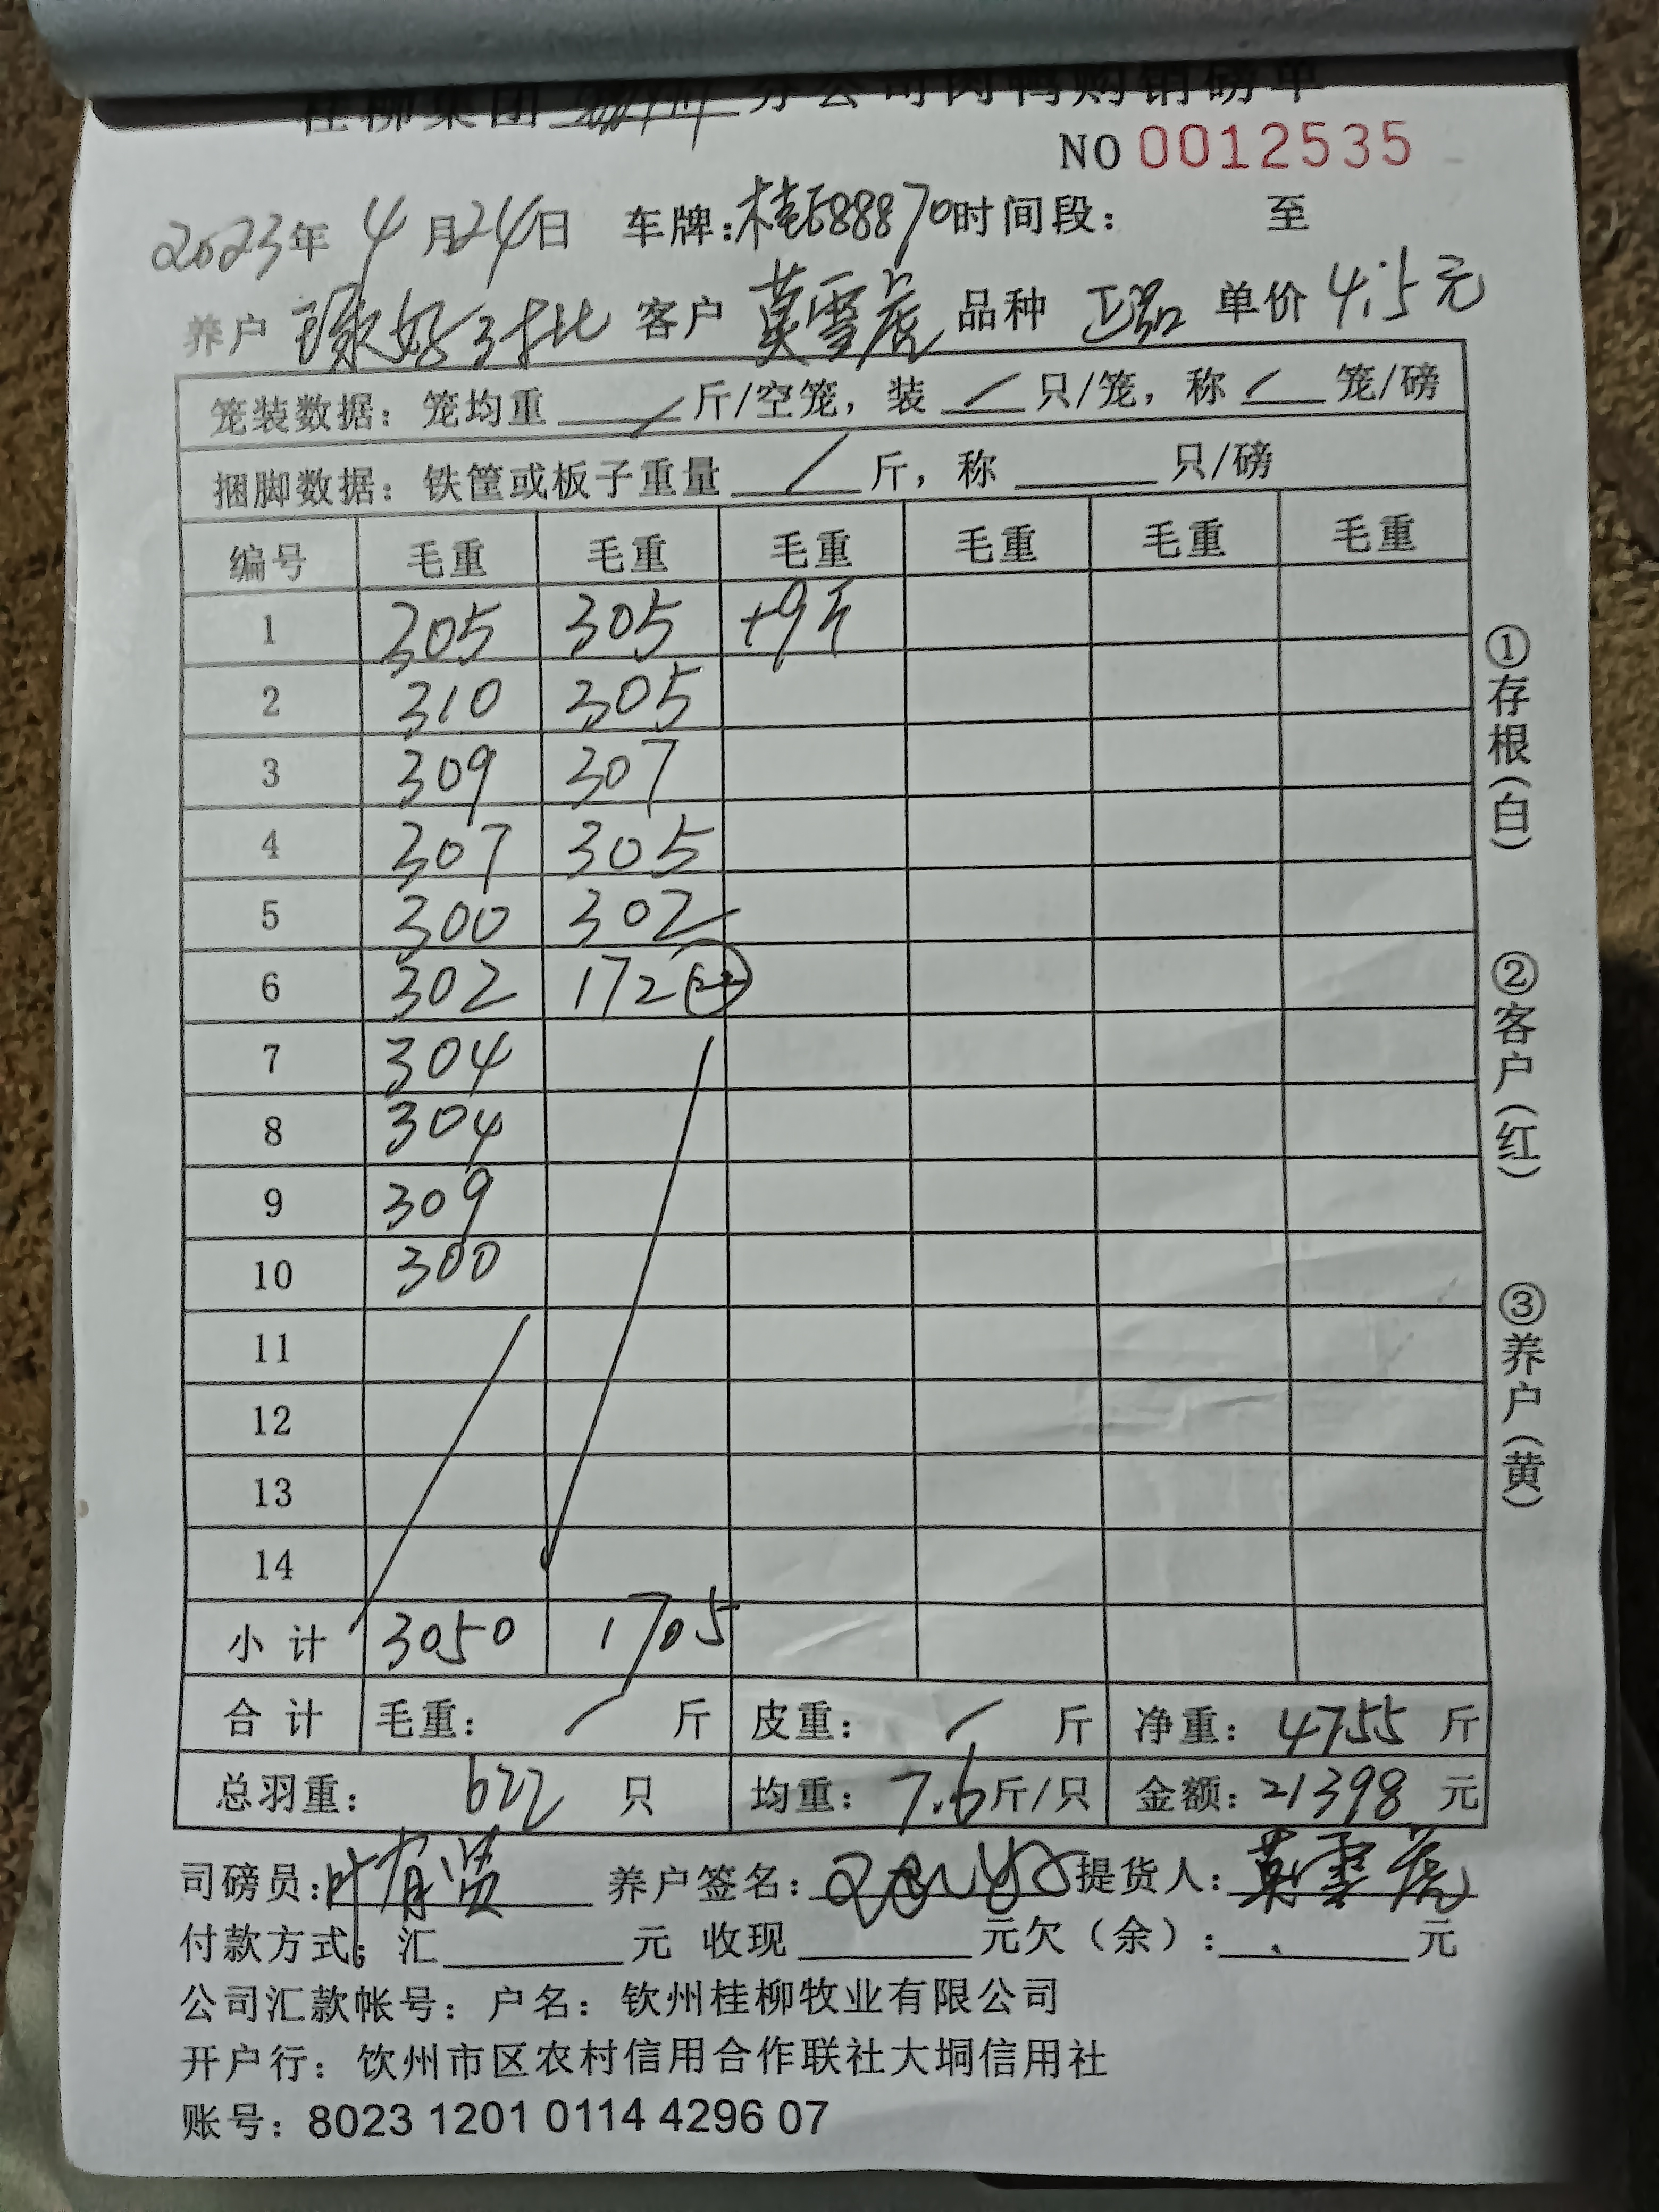 桂柳集团 分公司肉鸭购销磅单
NO 0012535
2023年 4月24日 车牌:桂E88870时间段: 至
养户 好对比 客户 莫雪虎 品种 正品 单价 4.5元
笼装数据: 笼均重 / 斤/空笼, 装 / 只/笼, 称 / 笼/磅
捆脚数据: 铁筐或板子重量 / 斤, 称 只/磅
编号 毛重 毛重 毛重 毛重 毛重 毛重
1 305 305 +9
2 310 305
3 309 307
4 307 305
5 300 302
6 302 172
7 304
8 304
9 309
10 300
11
12
13
14
小计 3050 1705
合计 毛重: / 斤 皮重: / 斤 净重: 4755 斤
总羽重: 622 只 均重: 7.6斤/只 金额: 21398 元
司磅员:叶有贤 养户签名: 提货人:莫雪虎
付款方式: 汇 元 收现 元欠(余): 元
公司汇款帐号: 户名: 钦州桂柳牧业有限公司
开户行: 饮州市区农村信用合作联社大垌信用社
账号: 8023 1201 0114 4296 07
①存根(白)
②客户(红)
③养户(黄)